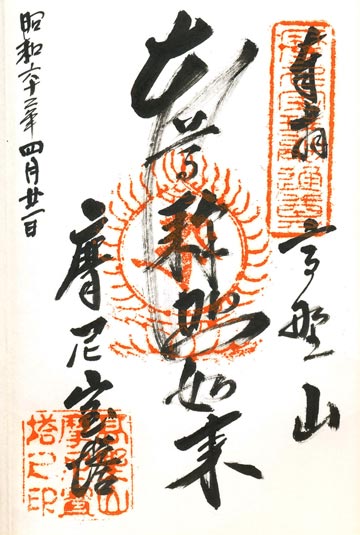 奉拝
高野山
本尊釈迦如来
摩尼宝塔
昭和六十二年四月廿一日
高野山
摩尼宝
塔之印